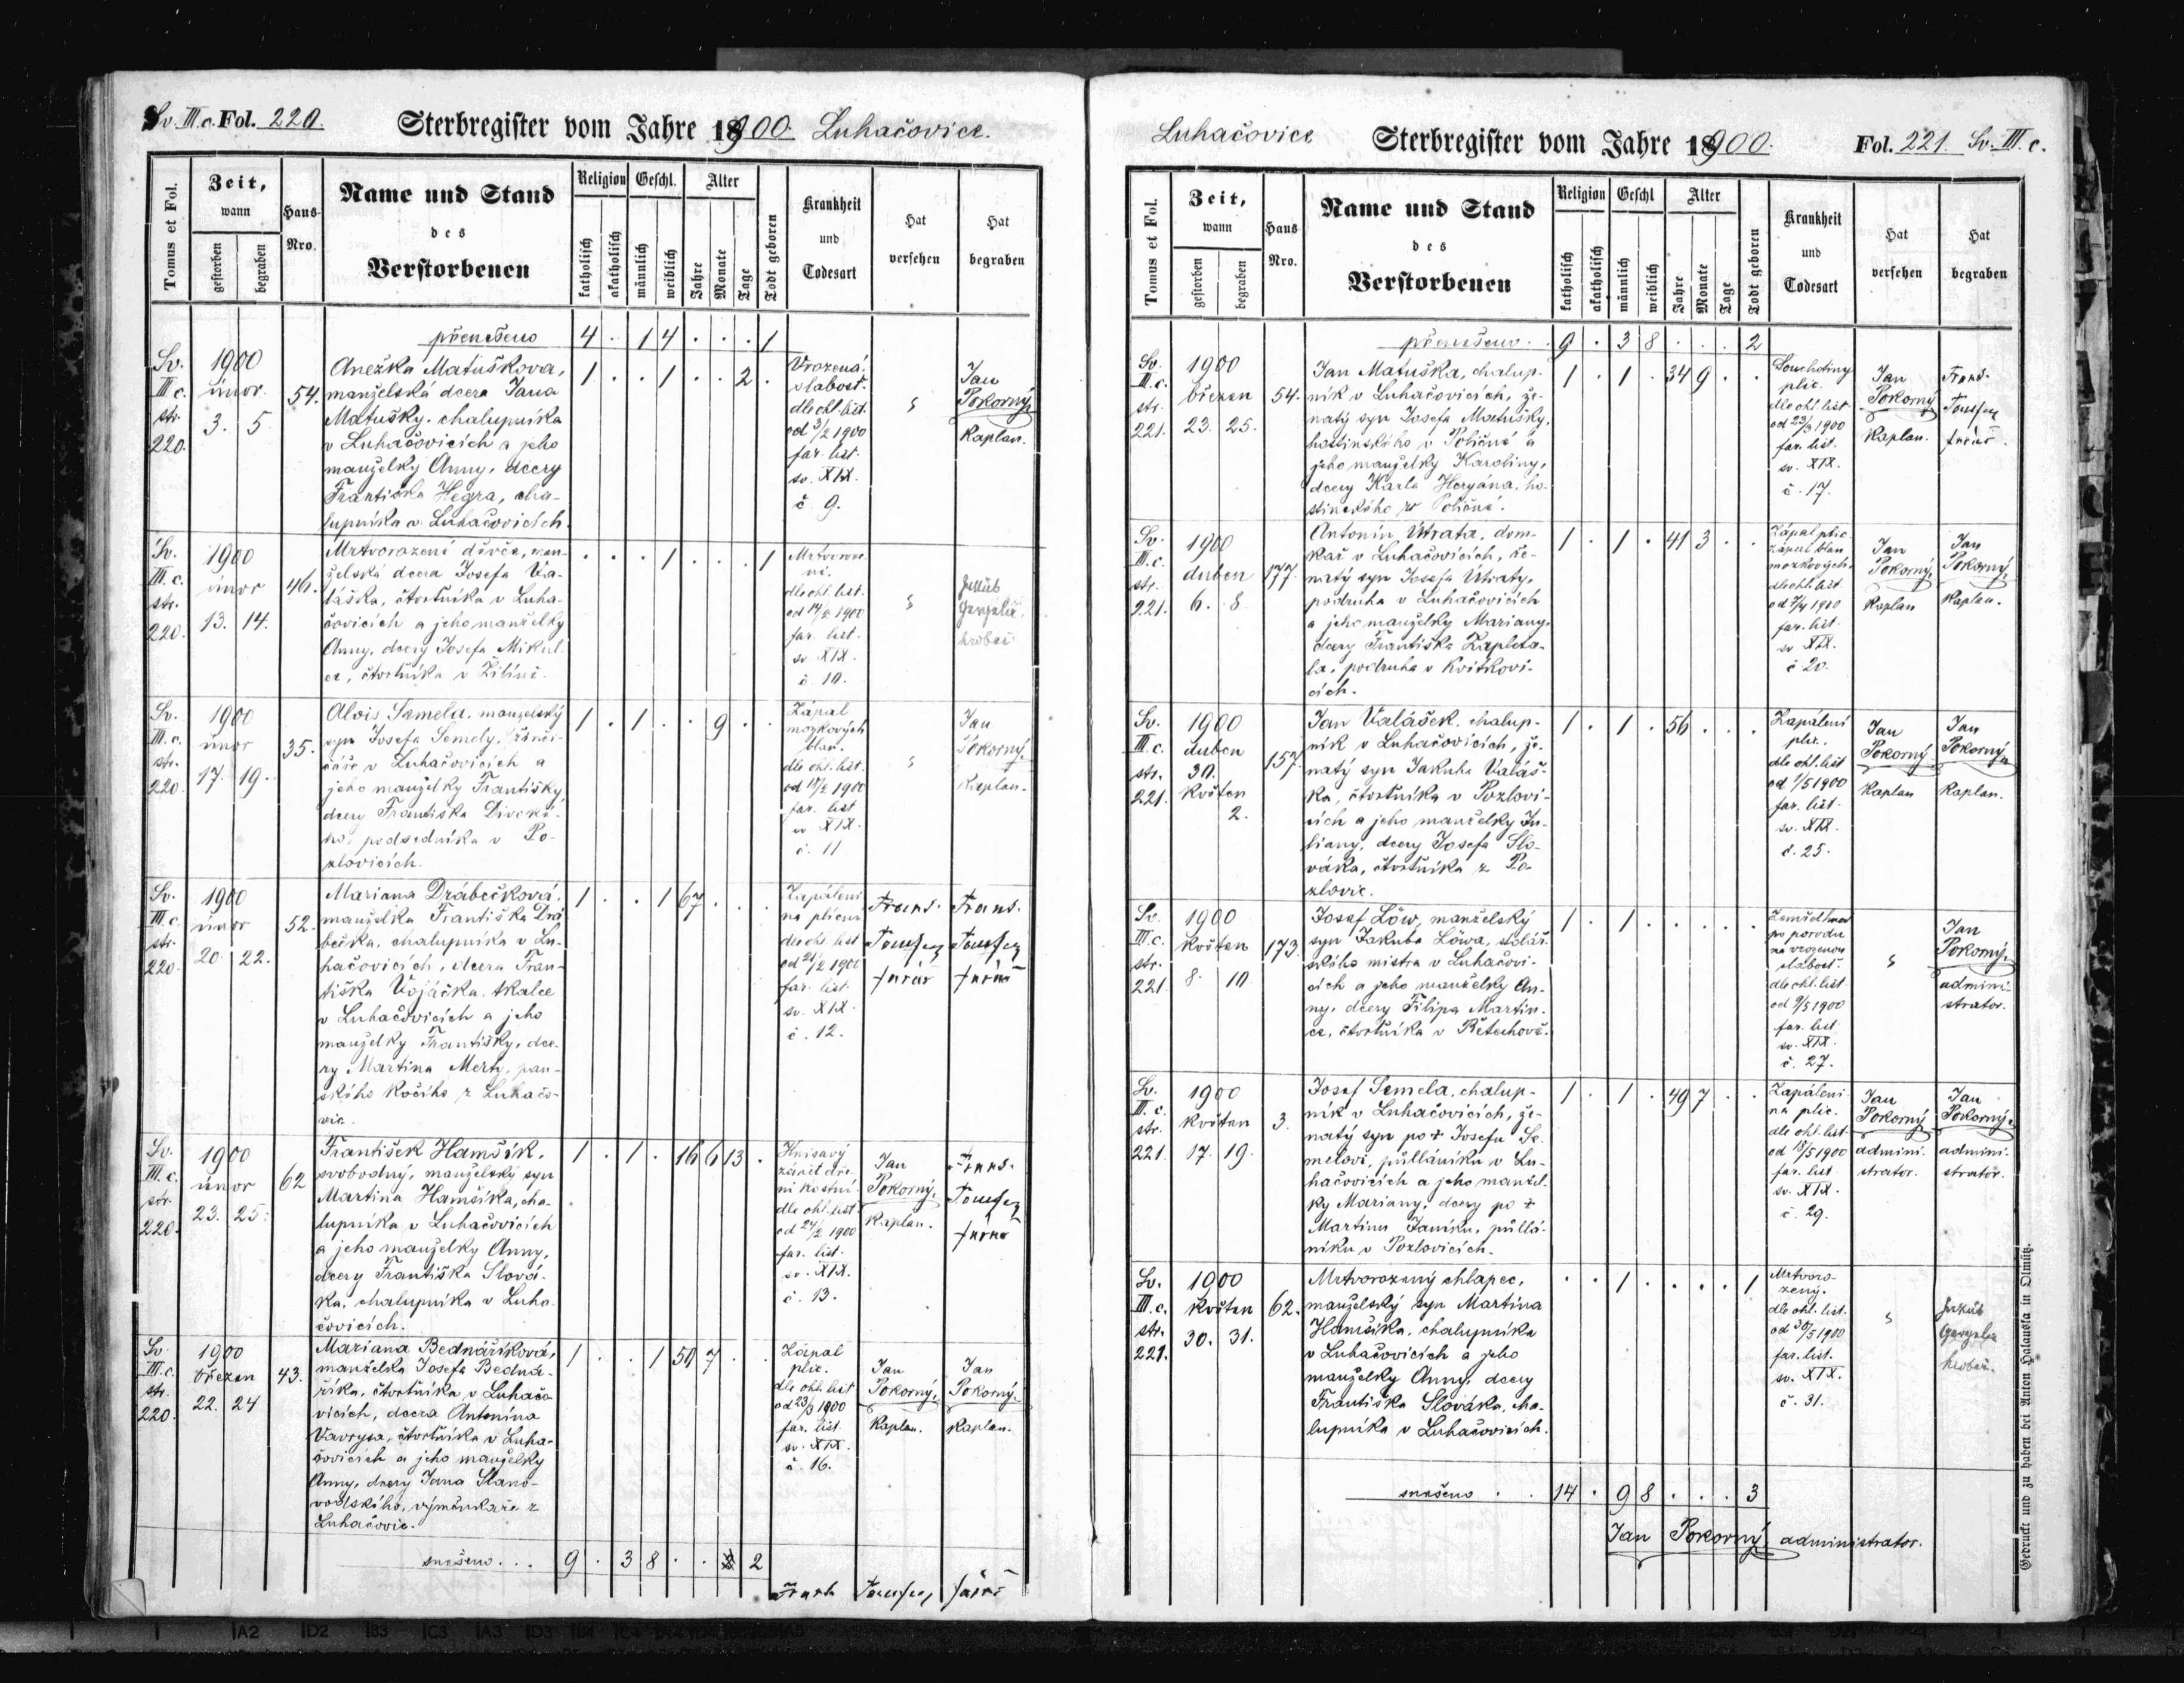 Sv. III.c. Fol. 220.
Sterbregister vom Jahre 1900. Luhačovice.
Tomus et Fol.
Zeit, wann
gestorben
begraben
Haus-Nro.
Name und Stand
des
Verstorbenen
Religion
katholisch
akatholisch
Geschl.
männlich
weiblich
Alter
Jahre
Monate
Tage
Todt geboren
Krankheit
und
Todesart
Hat
versehen
Hat
begraben
přenešeno 4 . 1 4 . . . 1
Sv. III.c. str. 220.
1900 únor 3. 5
54.
Anežka Matušková,
manželská dcera Jana
Matušky, chalupníka
v Luhačovicích a jeho
manželky Anny, dcery
Františka Hegra, cha-
lupníka v Luhačovicích.
1 . . 1 . . 2 .
Vrozená
slabost.
dle ohl. list.
od 3/2 1900
far. list.
sv. XIX.
č. 9.
Jan
Pokorný,
Kaplan.
Sv. III.c. str. 220.
1900 únor 13. 14.
46.
Mrtvorozené děvče, man-
želská dcera Josefa Va-
láška, čtvrtníka v Luha-
čovicích a jeho manželky
Anny, dcery Josefa Mikul-
ce, čtvrtníka v
. . . 1 . . . 1
Mrtvoroze-
né.
dle ohl. list.
od 14/2 1900
far. list.
sv. XIX.
č. 10.
hrobař
Sv. III.c. str. 220.
1900 únor 17. 19.
35.
Alois Semela, manželský
syn Josefa Semely,
v Luhačovicích a
jeho manželky Františky,
dcery Františka
podsedníka v Po-
zlovicích.
1 . 1 . . 9 . .
Zápal
mozkových
blan.
dle ohl. list.
od 18/2 1900
far. list
sv. XIX.
č. 11
Jan
Pokorný,
Kaplan.
Sv. III.c. str. 220.
1900 únor 20. 22.
52.
Mariana Drábečková,
manželka Františka Drá-
bečka, chalupníka v Lu-
hačovicích, dcera Fran-
tiška Vojáčka, tkalce
v Luhačovicích a jeho
manželky Františky, dce-
ry Martina Merty, pan-
ského kočího z Luhačo-
vic.
1 . . 1 67 . . .
Zapálení
na plicní
dle ohl. list
od 21/2 1900
far. list.
sv. XIX.
č. 12.
Frant.
farář
Frant.
farář
Sv. III.c. str. 220.
1900 únor 23. 25.
62
František Hamšík,
svobodný, manželský syn
Martina Hamšíka, cha-
lupníka v Luhačovicích
a jeho manželky Anny,
dcery Františka Slová-
ka, chalupníka v Luha-
čovicích.
1 . 1 . 16 6 13 .
Hnisavý
zánět dře-
ni kostní.
dle ohl. list.
od 24/2 1900
far. list.
sv. XIX.
č. 13.
Jan
Pokorný,
Kaplan.
Frant.
farář
Sv. III.c. str. 220.
1900 březen 22. 24
43.
Mariana Bednaříková,
manželka Josefa Bedna-
říka, čtvrtníka v Luhačo-
vicích, dcera Antonína
Vavrysa, čtvrtníka v Luha-
čovicích a jeho manželky
Anny, dcery Jana Slano-
vodského, výměnkaře z
Luhačovic.
1 . . 1 50 7 . .
Zápal
plic.
dle ohl. list
od 23/3 1900
far. list.
sv. XIX.
č. 16.
Jan
Pokorný,
Kaplan.
Jan
Pokorný,
Kaplan.
snešeno . . . 9 . 3 8 . . 2
farář
Luhačovice
Sterbregister vom Jahre 1900.
Fol. 221. Sv. III. c.
Tomus et Fol.
Zeit, wann
gestorben
begraben
Haus Nro.
Name und Stand
des
Verstorbenen
Religion
katholisch
akatholisch
Geschl
männlich
weiblich
Alter
Jahre
Monate
Tage
Todt geboren
Krankheit
und
Todesart
Hat
versehen
Hat
begraben
přenešeno . . 9 . 3 8 . . . 2
Sv. III.c. str. 221.
1900 březen 23. 25.
54.
Jan Matuška, chalup-
ník v Luhačovicích, že-
natý syn Josefa Matušky,
hostinského v Poličné a
jeho manželky Karoliny,
dcery Karla Heryána, ho-
stinského z Poličné.
1 . 1 . 34 9 . .
Souchotiny
plic.
dle ohl. list
od 23/3 1900
far. list.
sv. XIX.
č. 17.
Jan
Pokorný
Kaplan.
Frant.
farář.
Sv. III.c. str. 221.
1900 duben 6. 8.
177.
Antonín Útrata, dom-
kař v Luhačovicích, že-
natý syn Josefa Útraty,
podruha v Luhačovicích
a jeho manželky Mariany,
dcery Františka Zapleta-
la, podruha v Kvítkovi-
cích.
1 . 1 . 41 3 . .
Zápal plic.
zápal blan
mozkových.
dle ohl. list
od 7/4 1900
far. list.
sv. XIX.
č 20.
Jan
Pokorný,
Kaplan
Jan
Pokorný,
Kaplan.
Sv. III.c. str. 221.
1900 duben 30. Květen 2.
157.
Jan Valášek, chalup-
ník v Luhačovicích, že-
natý syn Jakuba Valáš-
ka, čtvrtníka v Pozlovi-
cích a jeho manželky Ju-
liany, dcery Josefa Slo-
váka, čtvrtníka z Po-
zlovic.
1 . 1 . 56 . . .
Zapálení
plic.
dle ohl. list
od 1/5 1900
far. list.
sv. XIX.
č. 25.
Jan
Pokorný
Kaplan
Jan
Pokorný,
Kaplan.
Sv. III.c. str. 221.
1900 Květen 8. 10.
173.
Josef Löw, manželský
syn Jakuba Löwa, kolář-
ského mistra v Luhačovi-
cích a jeho manželky An-
ny, dcery Filipa Martin-
ce, čtvrtníka v Řetechově.
1 . 1 . . . . .
po porodu
na vrozenou
slabost.
dle ohl. list.
od 9/5 1900
far. list.
sv. XIX.
č. 27.
Jan
Pokorný,
admini-
strator.
Sv. III.c. str. 221.
1900 Květen 17. 19.
3.
Josef Semela, chalup-
ník v Luhačovicích, že-
natý syn po † Josefu Se-
melovi, půlláníku v Lu-
hačovicích a jeho manžel-
ky Mariany, dcery po †
Martinu Janíku, půllá-
níku v Pozlovicích.
1 . 1 . 49 7 . .
Zapálení
na plic.
dle ohl. list.
od 18/5 1900
far. list
sv. XIX.
č. 29.
Jan
Pokorný
admini-
strator.
Jan
Pokorný,
admini-
stratór.
Sv. III.c. str. 221.
1900 Květen 30. 31.
62.
Mrtvorozený chlapec,
manželský syn Martina
Hamšíka, chalupníka
v Luhačovicích a jeho
manželky Anny, dcery
Františka Slováka, cha-
lupníka v Luhačovicích.
. . 1 . . . . 1
Mrtvoro-
zený.
dle ohl. list.
od 30/5 1900
far. list.
sv. XIX.
č. 31.
Jakub
hrobař.
snešeno . . 14 . 9 8 . . . 3
Jan Pokorný, administrator.
Gedruckt und zu haben bei Anton Halauska in Olmütz.